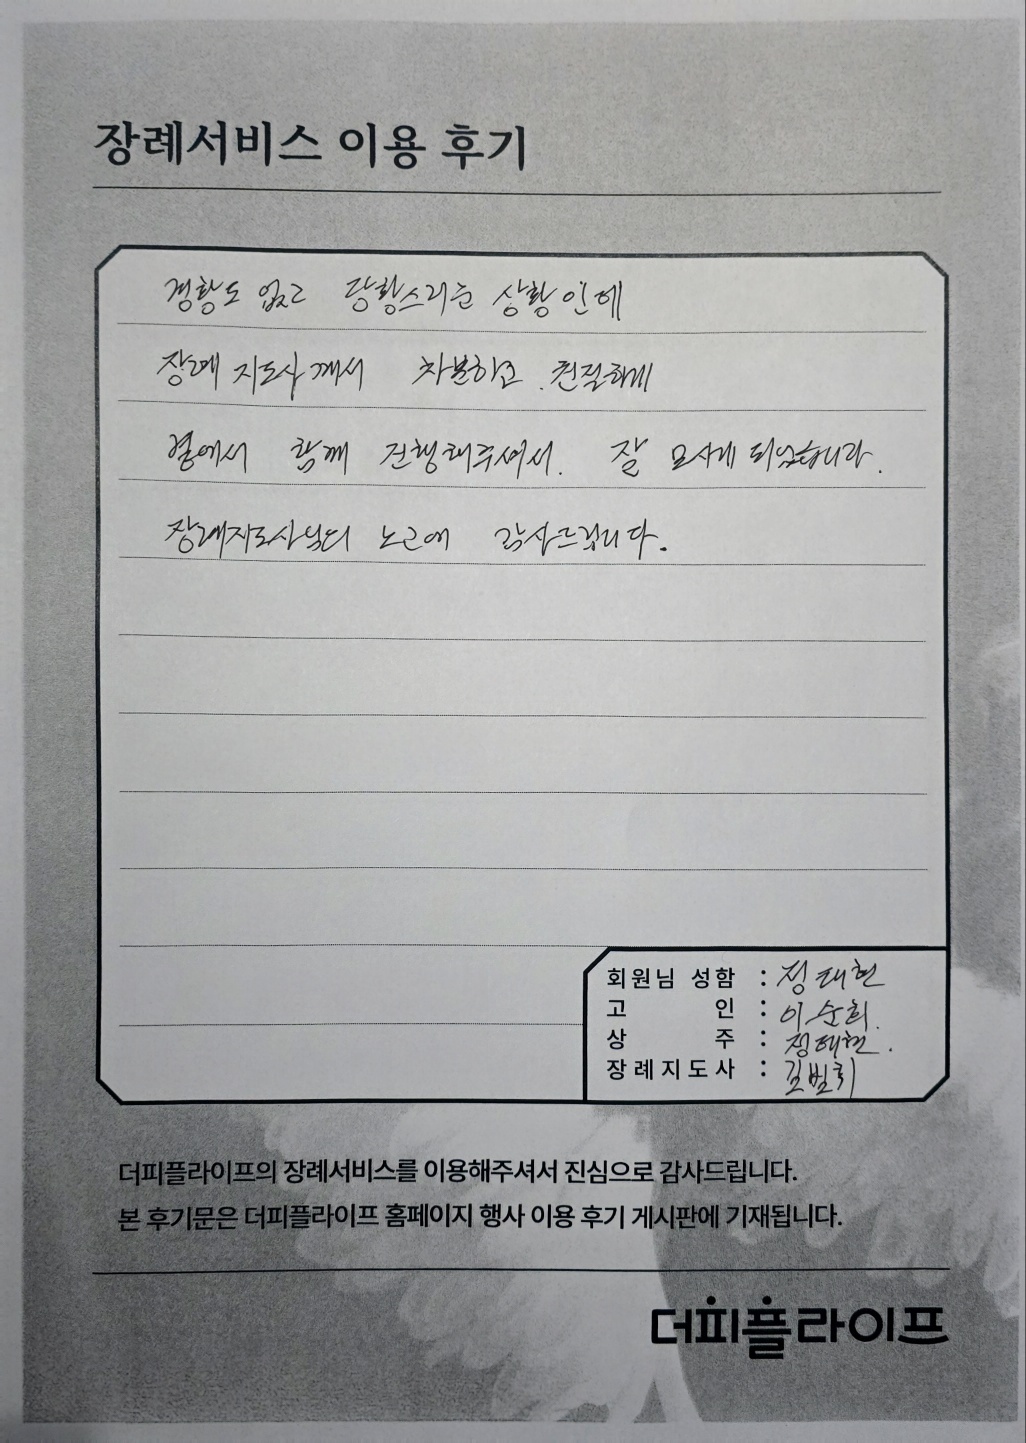 장례서비스 이용 후기
경황도 없고 당황스러운 상황인데
장례 지도사께서 차분하고 친절하게
옆에서 함께 진행해주셔서. 잘 모시게 되었습니다.
장례지도사님의 노고에 감사드립니다.
회원님 성함 : 정태현
고 인 : 이순희.
상 주 : 정태현.
장례지도사 :
더피플라이프의 장례서비스를 이용해주셔서 진심으로 감사드립니다.
본 후기문은 더피플라이프 홈페이지 행사 이용 후기 게시판에 기재됩니다.
더피플라이프